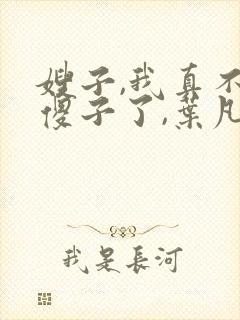 嫂子,我真不
傻子了,葉凡
我是長河